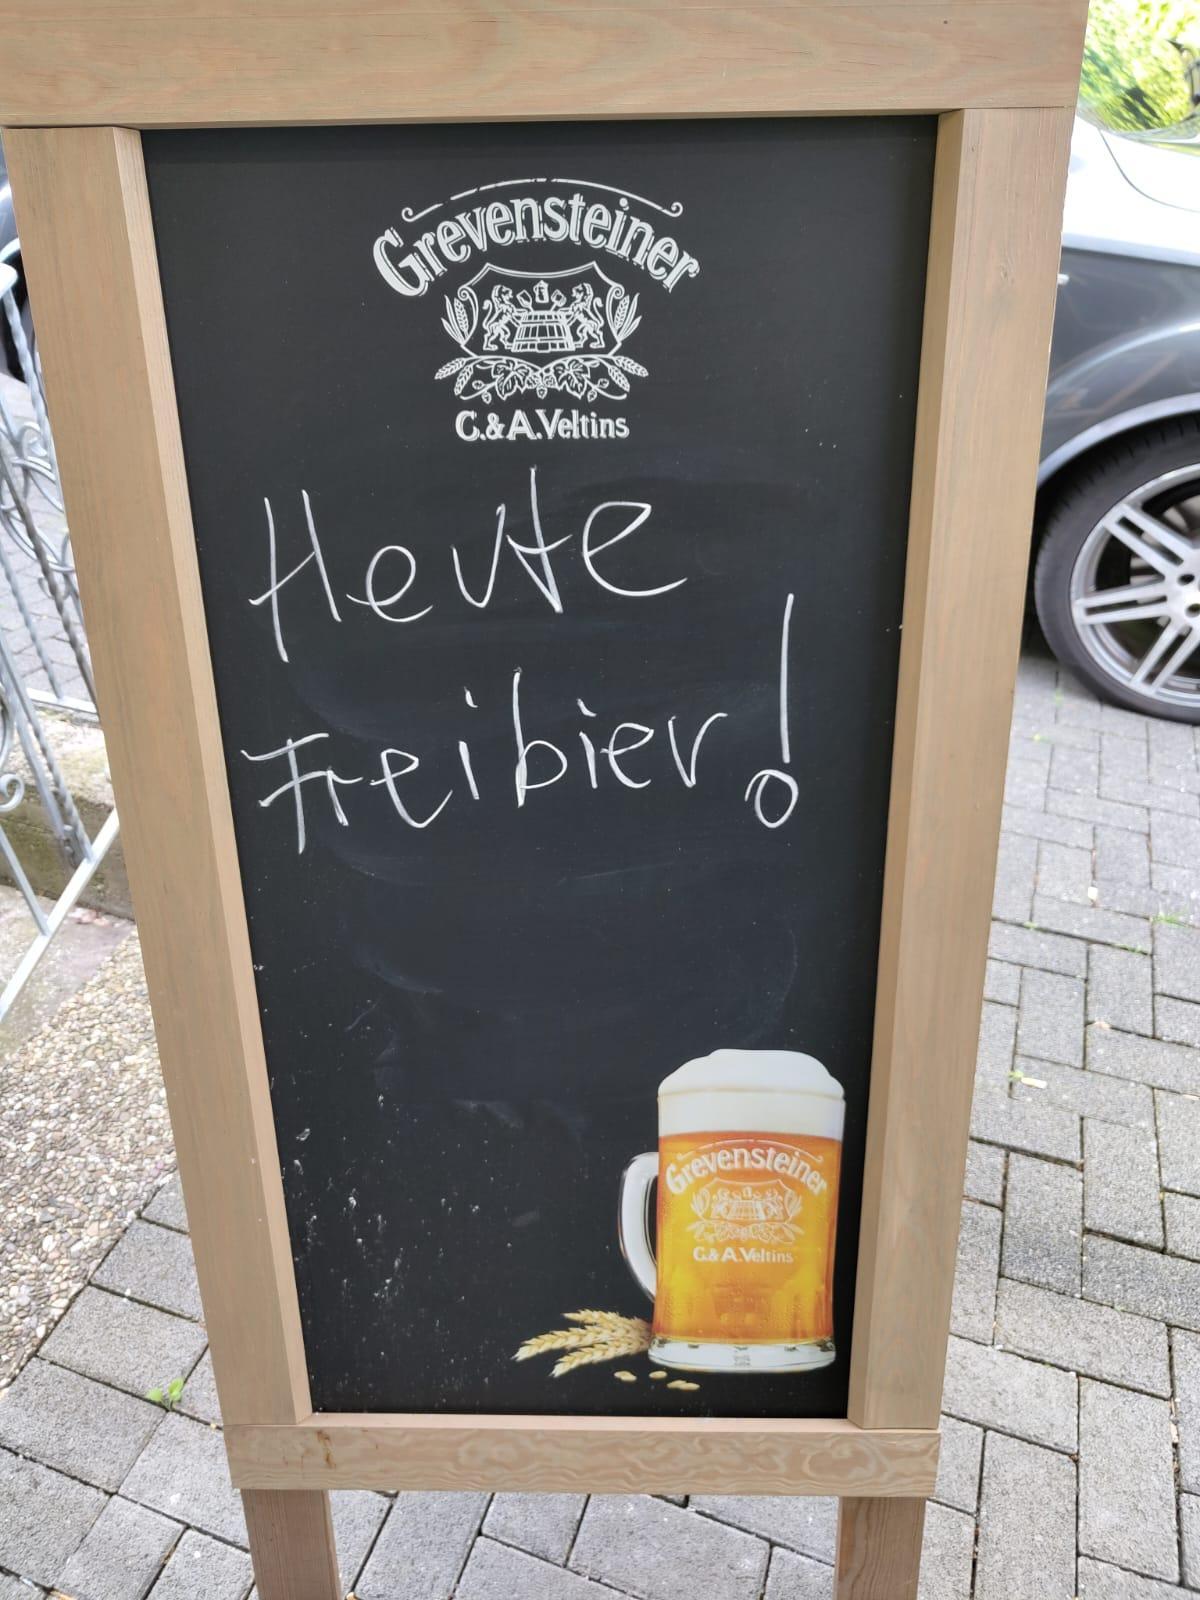 Grevensteiner
C.&A.Veltins
Heute
Freibier!
Grevensteiner
C.&A.Veltins